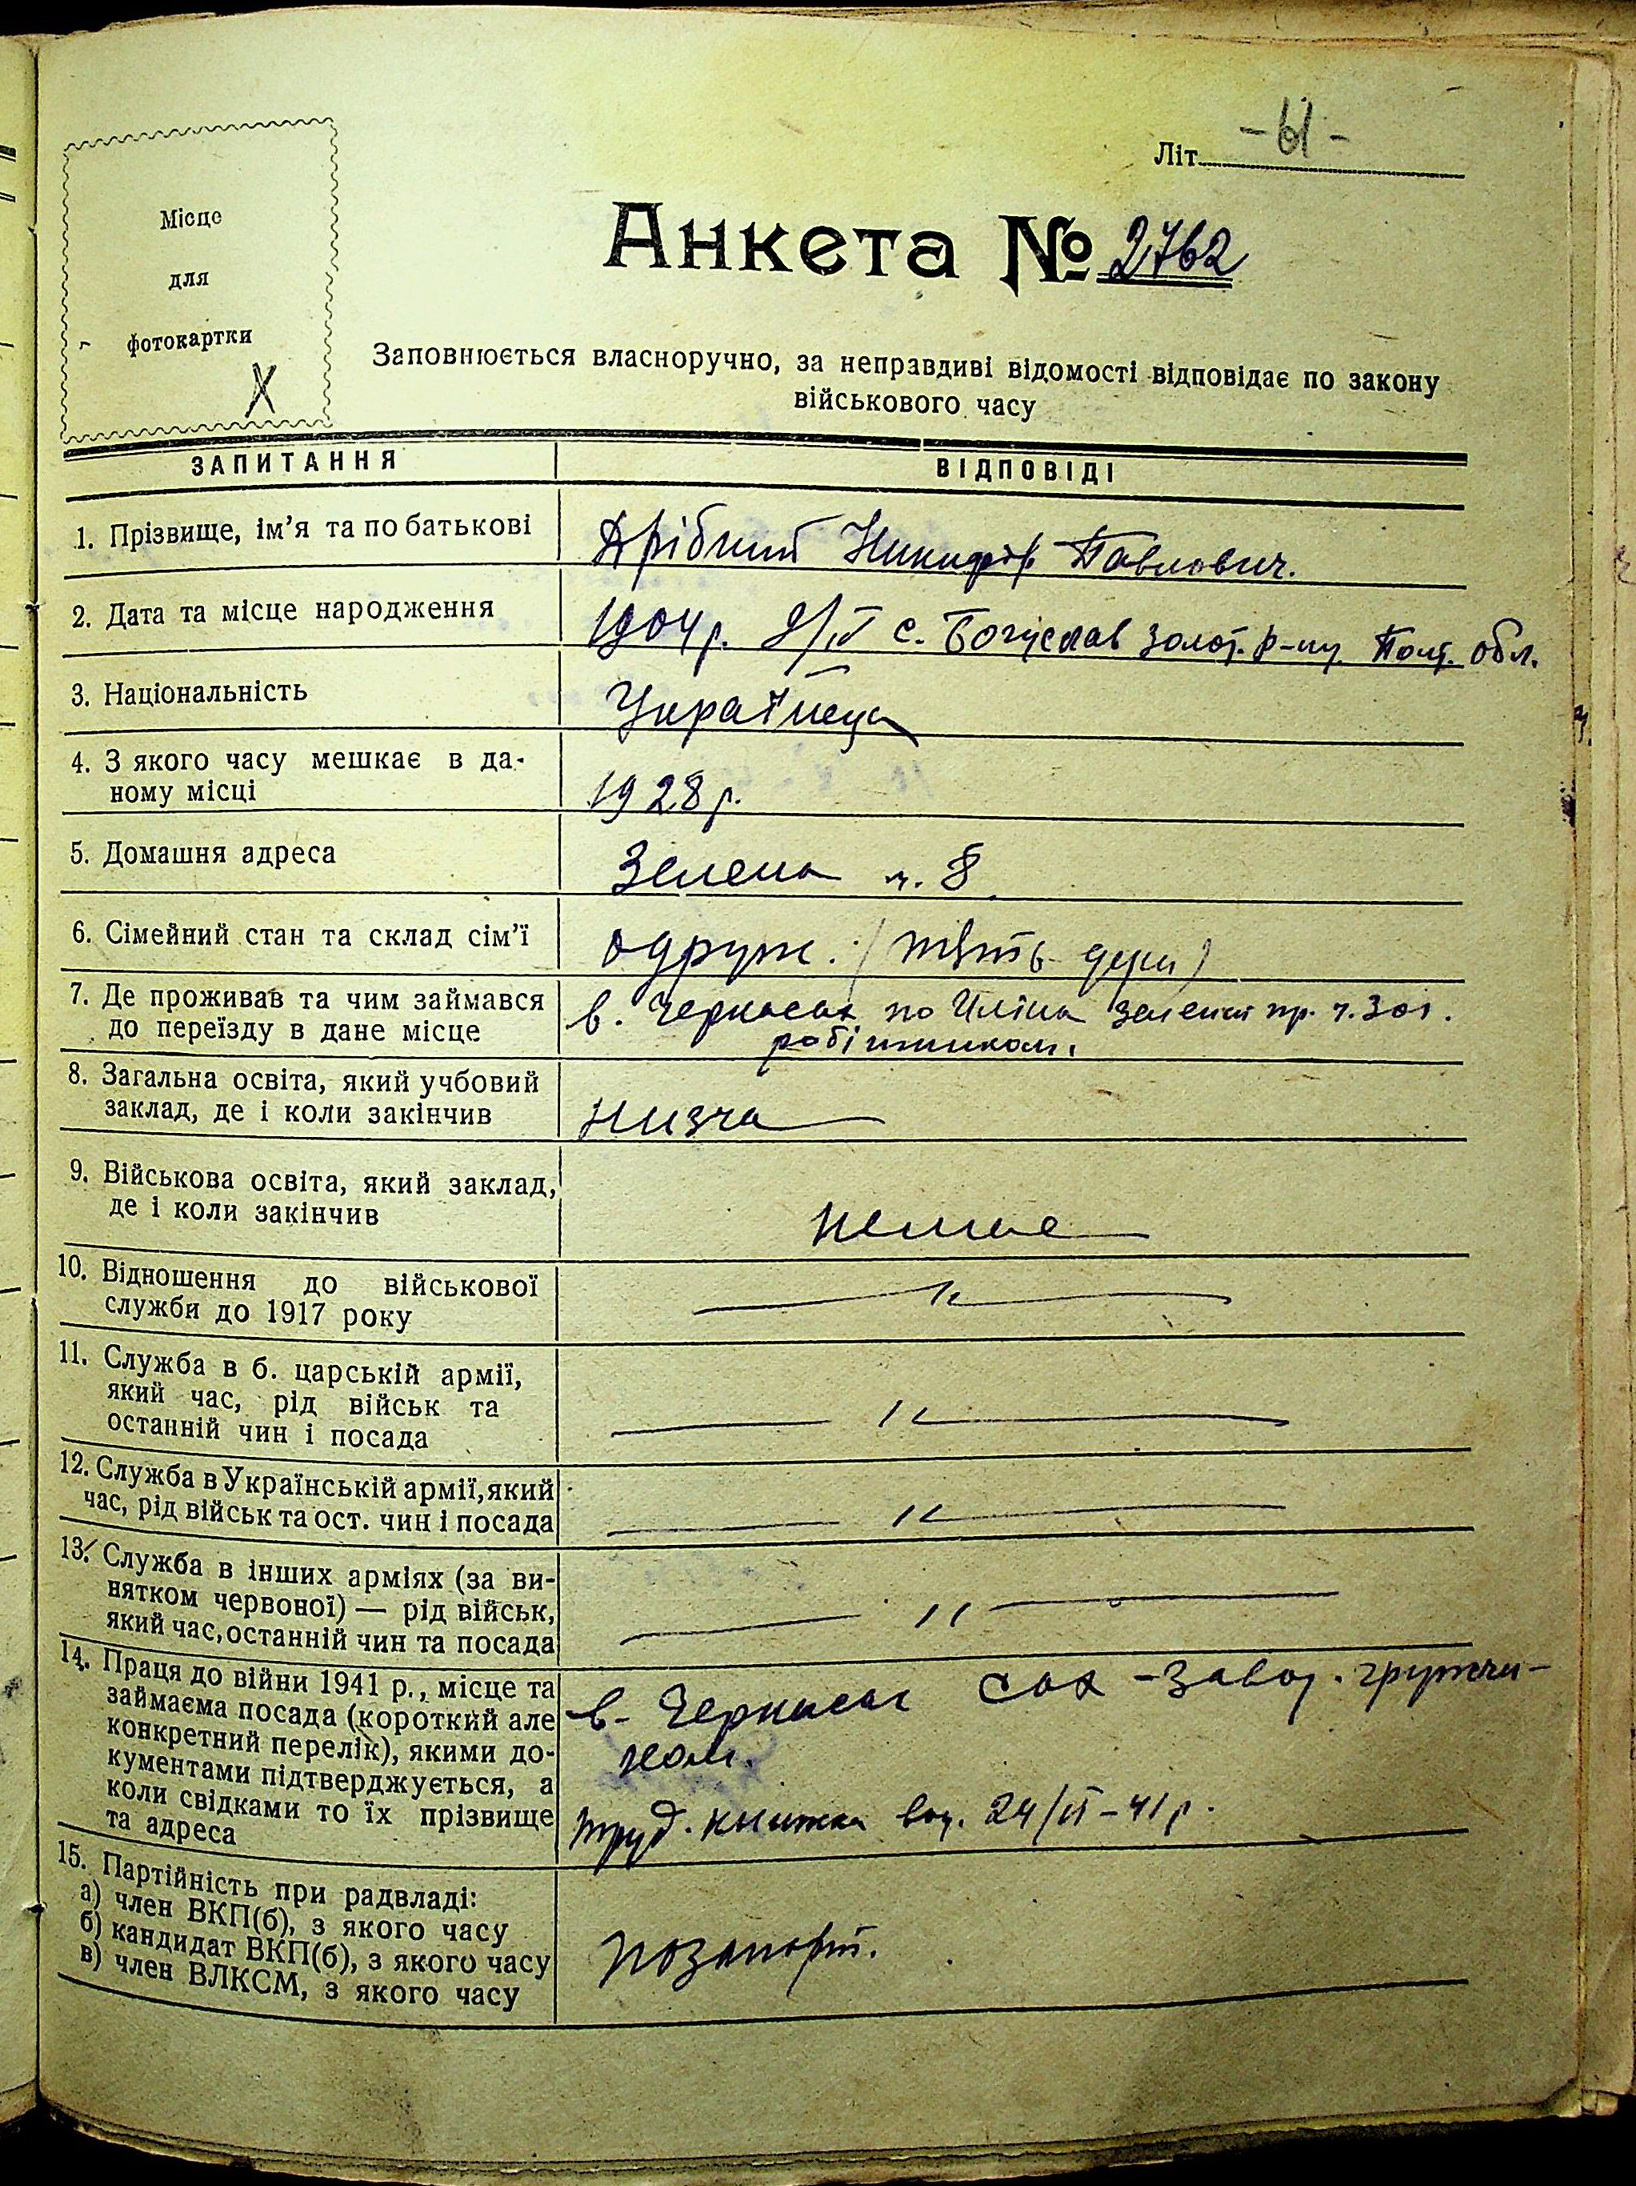 Місце
для
фотокартки
Х
Літ. -61-
Анкета № 2762
Заповнюється власноручно, за неправдиві відомості відповідає по закону
військового часу
ЗАПИТАННЯ
ВІДПОВІДІ
1. Прізвище, ім'я та по батькові
Дрібний Никифор Павлович.
2. Дата та місце народження
1904 р. с. Богуслав Золот. р-ну Полт. обл.
3. Національність
Українець
4. З якого часу мешкає в да-
ному місці
1928 р.
5. Домашня адреса
Зелена ч. 8
6. Сімейний стан та склад сім'ї
одруж.
7. Де проживав та чим займався
до переїзду в дане місце
в. Черкасах по
робітником.
8. Загальна освіта, який учбовий
заклад, де і коли закінчив
низча
9. Військова освіта, який заклад,
де і коли закінчив
немає
10. Відношення до військової
служби до 1917 року
— " —
11. Служба в б. царській армії,
який час, рід військ та
останній чин і посада
— " —
12. Служба в Українській армії, який
час, рід військ та ост. чин і посада
— " —
13. Служба в інших арміях (за ви-
нятком червоної) — рід військ,
який час, останній чин та посада
— " —
14. Праця до війни 1941 р., місце та
займаєма посада (короткий але
конкретний перелік), якими до-
кументами підтверджується, а
коли свідками то їх прізвище
та адреса
в. Черкасах сах-завод. грузчи-
ком.
труд. книжка від. 24/II-41 р.
15. Партійність при радвладі:
а) член ВКП(б), з якого часу
б) кандидат ВКП(б), з якого часу
в) член ВЛКСМ, з якого часу
позапарт.